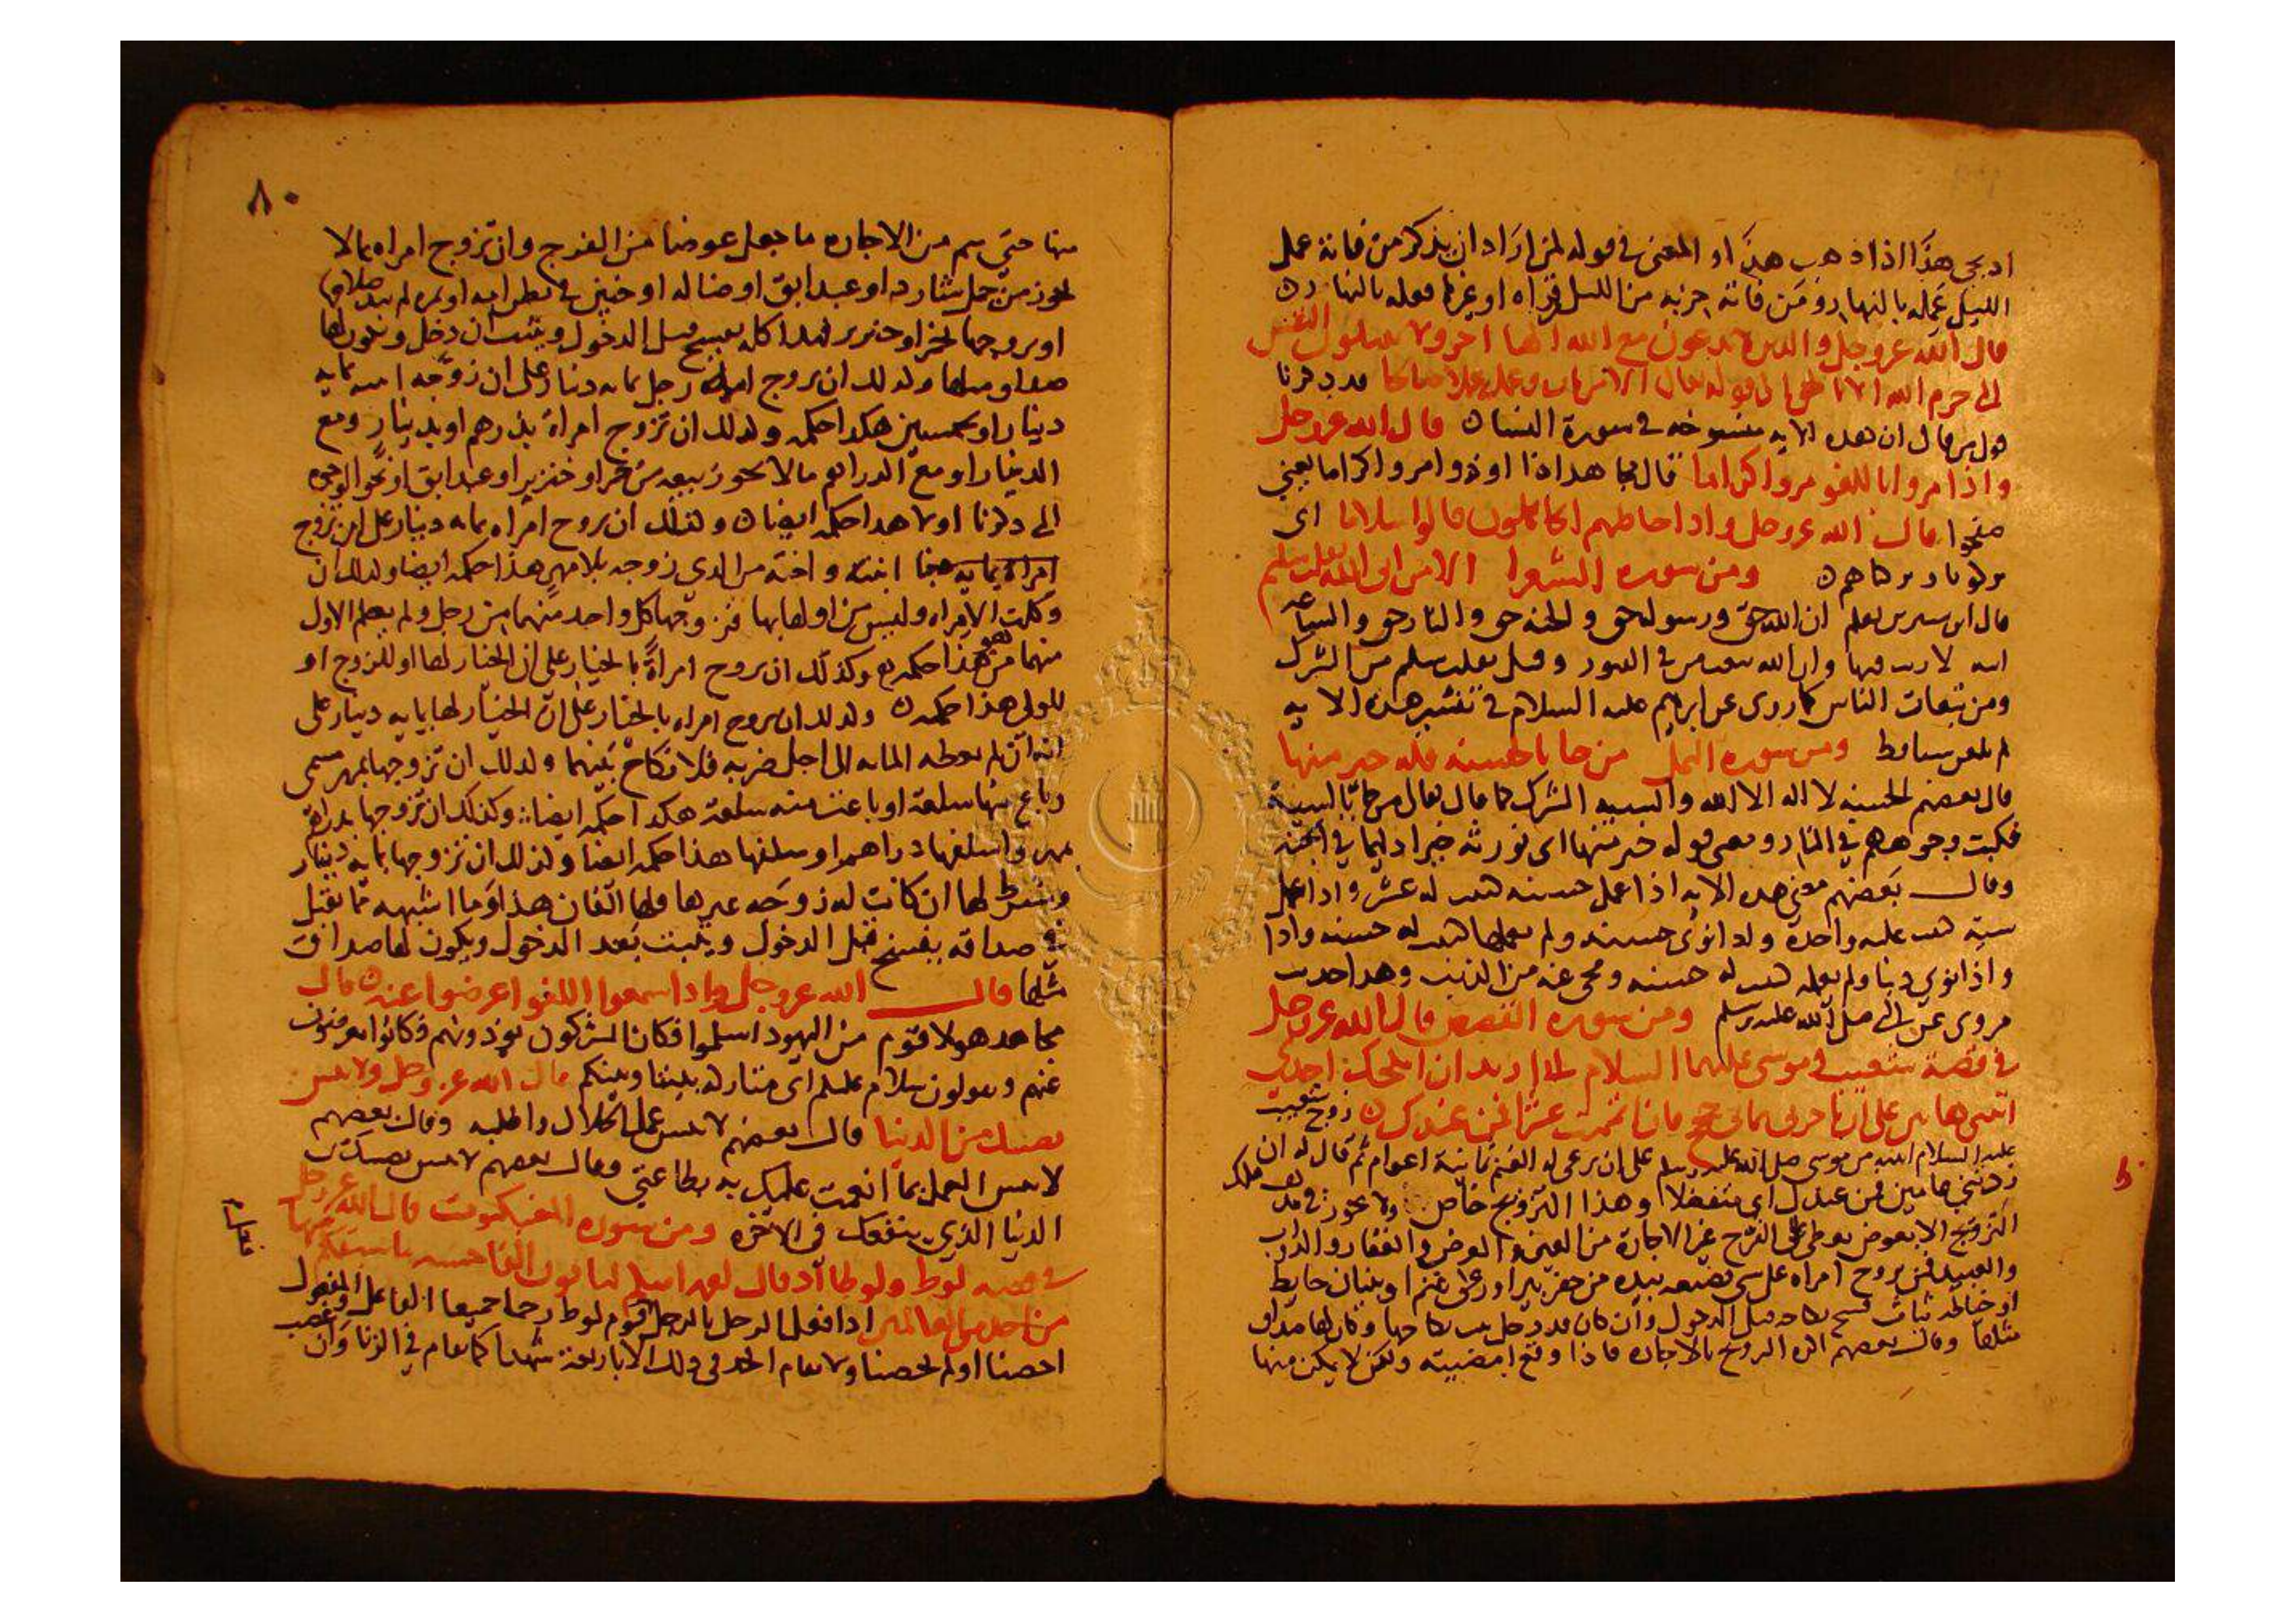 او يجي هذا اذا ذهب هذا او المعنى في قوله لمن اراد ان يذكر من فاته عمل
الليل عمله بالنهار ومن فاته حزبه من الليل فقراه او غيرها فعله بالنهار
قال الله عز وجل والذين لا يدعون مع الله الها اخر ولا يقتلون النفس
التي حرم الله الا بالحق الى قوله تعالى الا من تاب وعمل عملا صالحا قد ذكرنا
قول من قال ان هذه الايه منسوخه في سورة النسا قال الله عز وجل
واذا مروا باللغو مروا كراما قال مجاهد اذا اوذوا مروا كراما يعني
صفحوا قال الله عز وجل واذا خاطبهم الجاهلون قالوا سلاما اى
ومن سوره الشعرا الا من اتى الله بقلب سليم
قال ابن سيرين يعلم ان الله حق ورسوله حق والجنه حق والنار حق والساعه
اتيه لا ريب فيها وان الله يبعث من في القبور وقيل بقلب سليم من الشرك
ومن تبعات الناس كما روى عن ابرهيم عليه السلام في تفسير هذه الايه
ومن سوره النمل من جا بالحسنه فله خير منها
قال بعضهم الحسنه لا اله الا الله والسييه الشرك كما قال تعالى من جا بالسييه
فكبت وجوههم في النار ومعنى قوله خير منها اى تورثه خيرا دايما في الجنه
وقال بعضهم معنى هذه الايه اذا عمل حسنه كتب له عشر واذا عمل
سيه كتب عليه واحدة واذا نوى حسنه ولم يعملها كتب له حسنه واذا
واذا نوى ذنبا ولم يعمله كتب له حسنه ومحى عنه من الذنب وهذا حديث
مروى عن النبي صلى الله عليه وسلم ومن سوره القصص قال الله عز وجل
في قصة شعيب في موسى عليهما السلام اني اريد ان انكحك احدى
ابنتي هاتين على ان تاجرني ثماني حجج فان اتممت عشرا فمن عندك زوج شعيب
عليه السلام ابنته من موسى صلى الله عليه وسلم على ان يرعى له الغنم ثمانية اعوام ثم قال له ان
زدتني عامين فمن عندك اى متفضلا وهذا التزويج خاص ولا يجوز في
التزويج الا بعوض يعطى على الفرج غير الاجارة من العين والعرض والعقار والدواب
والعبيد فمن تزوج امراه على شي يصنعه بيده من حفر بير او رعى غنم او بنيان حايط
او خياطه ثياب فسخ نكاحه قبل الدخول وان كان قد دخل ثبت نكاحها وكان لها صداق
مثلها وقال بعضهم اكره التزويج بالاجاره فاذا وقع امضيته ولكن لا يكن منها
٨٠
منها حتى سم من الاجاره ما جعل عوضا من الفرج وان تزوج امراه بما لا
يجوز من جمل شارد او عبد ابق او ضاله او جنين في بطن امه او ثمره لم يبد صلاحها
او تزوجها بخمر او خنزير فهذا كله يفسخ قبل الدخول ويثبت ان دخل ويكون لها
صداق مثلها وكذلك ان تزوج امراة رجل بمايه دينار على ان زوجه ابنته بمايه
دينار او بخمسين هكذا حكمه وكذلك ان تزوج امراة بدرهم او بدينار ومع
الدينار او مع الدراهم ما لا يجوز بيعه من خمر او خنزير او عبد ابق او نحو الوجوه
التي ذكرنا اولا هذا حكمه ايضا وكذلك ان تزوج امراه بمايه دينار على ان تزوج
ابنته واخته من الذي زوجه بلا مهر هذا حكمه ايضا وكذلك ان
وكلت الامراه وليين من اوليايها فزوجها كل واحد منهما من رجل ولم يعلم الاول
منهما من هو هذا حكمه وكذلك ان تزوج امراة بالخيار على ان الخيار لها او للزوج او
للولي هذا حكمه وكذلك ان تزوج امراه بالخيار على ان الخيار لها بمايه دينار على
انه ان لم يعطه المايه الى اجل ضربه فلا نكاح بينهما وكذلك ان تزوجها بمهر مسمى
وباع منها سلعة او باعت منه سلعة هكذا حكمه ايضا وكذلك ان تزوجها بدراهم
مهر واسلفها دراهم او سلفها هذا حكمه ايضا وكذلك ان تزوجها بمايه دينار
وشرط لها ان كانت له زوجه غيرها فلها الفان هذا وما اشبهه مما يقبل
في صداقه يفسخ قبل الدخول ويثبت بعد الدخول ويكون لها صداق
مثلها قال الله عز وجل واذا سمعوا اللغو اعرضوا عنه قال
مجاهد هولا قوم من اليهود اسلموا فكان المشركون يوذونهم فكانوا يعرضون
عنهم ويقولون سلام عليكم اى متاركه بيننا وبينكم قال الله عز وجل ولا تنس
نصيبك من الدنيا قال بعضهم لا تنس عمل الحلال واطلبه وقال بعضهم
لا تنس العمل بما انعمت عليك به بطاعتي وقال بعضهم لا تنس نصيبك من
الدنيا الذي ينفعك في الاخره ومن سوره العنكبوت قال الله عز وجل
في قصه لوط ولوطا اذ قال لقومه انكم لتاتون الفاحشه ما سبقكم بها
من احد من العالمين اذا فعل الرجل بالرجل فعل قوم لوط رجما جميعا الفاعل والمفعول
احصنا او لم يحصنا ولا يقام الحد في ذلك الا باربعة شهدا كما يقام في الزنا وان